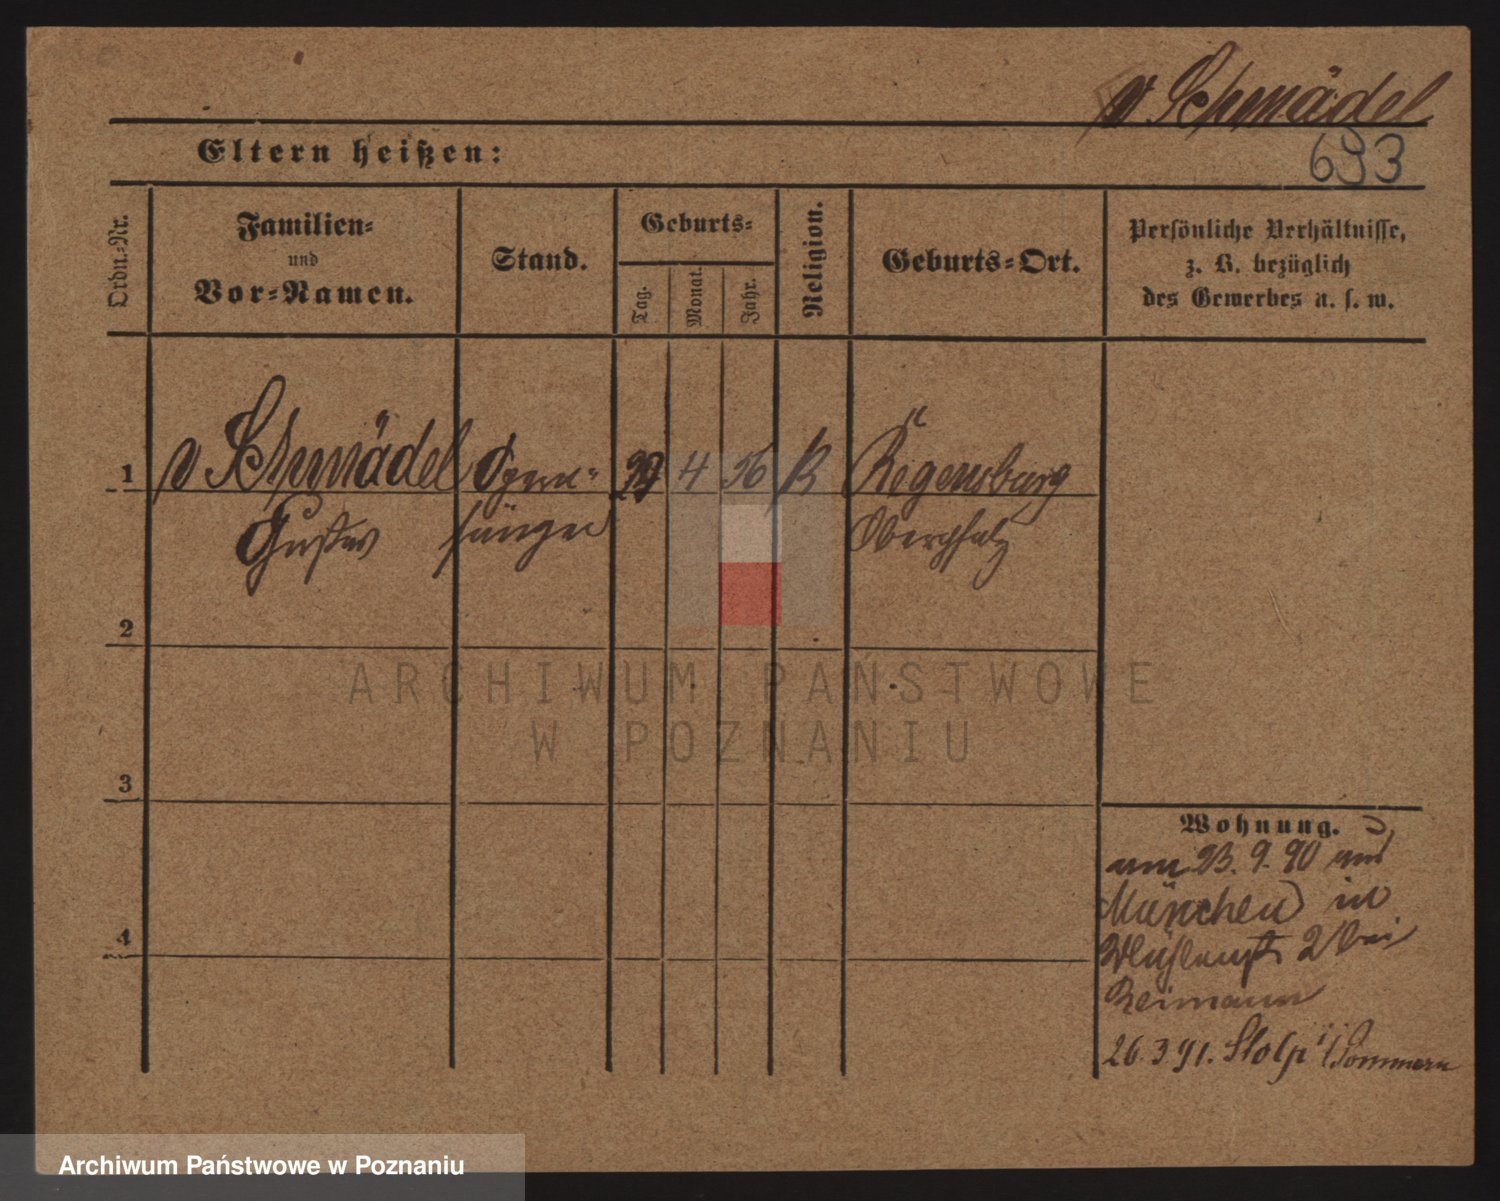 v Schmädel
Eltern heißen:
693
Ordn.-Nr.
Familien-
und
Vor-Namen.
Stand.
Geburts-
Tag.
Monat.
Jahr.
Religion.
Geburts-Ort.
Persönliche Verhältnisse,
z. B. bezüglich
des Gewerbes u. s. w.
1 v Schmädel Opern- 4 56 K Regensburg
Gustav sänger Oberpfalz
2
3
4
Wohnung.
am 23. 9. 90 aus
München in
2 bei
Reimann
26.3.91. Stolp i/Pommern
ARCHIWUM PAŃSTWOWE
W POZNANIU
Archiwum Państwowe w Poznaniu